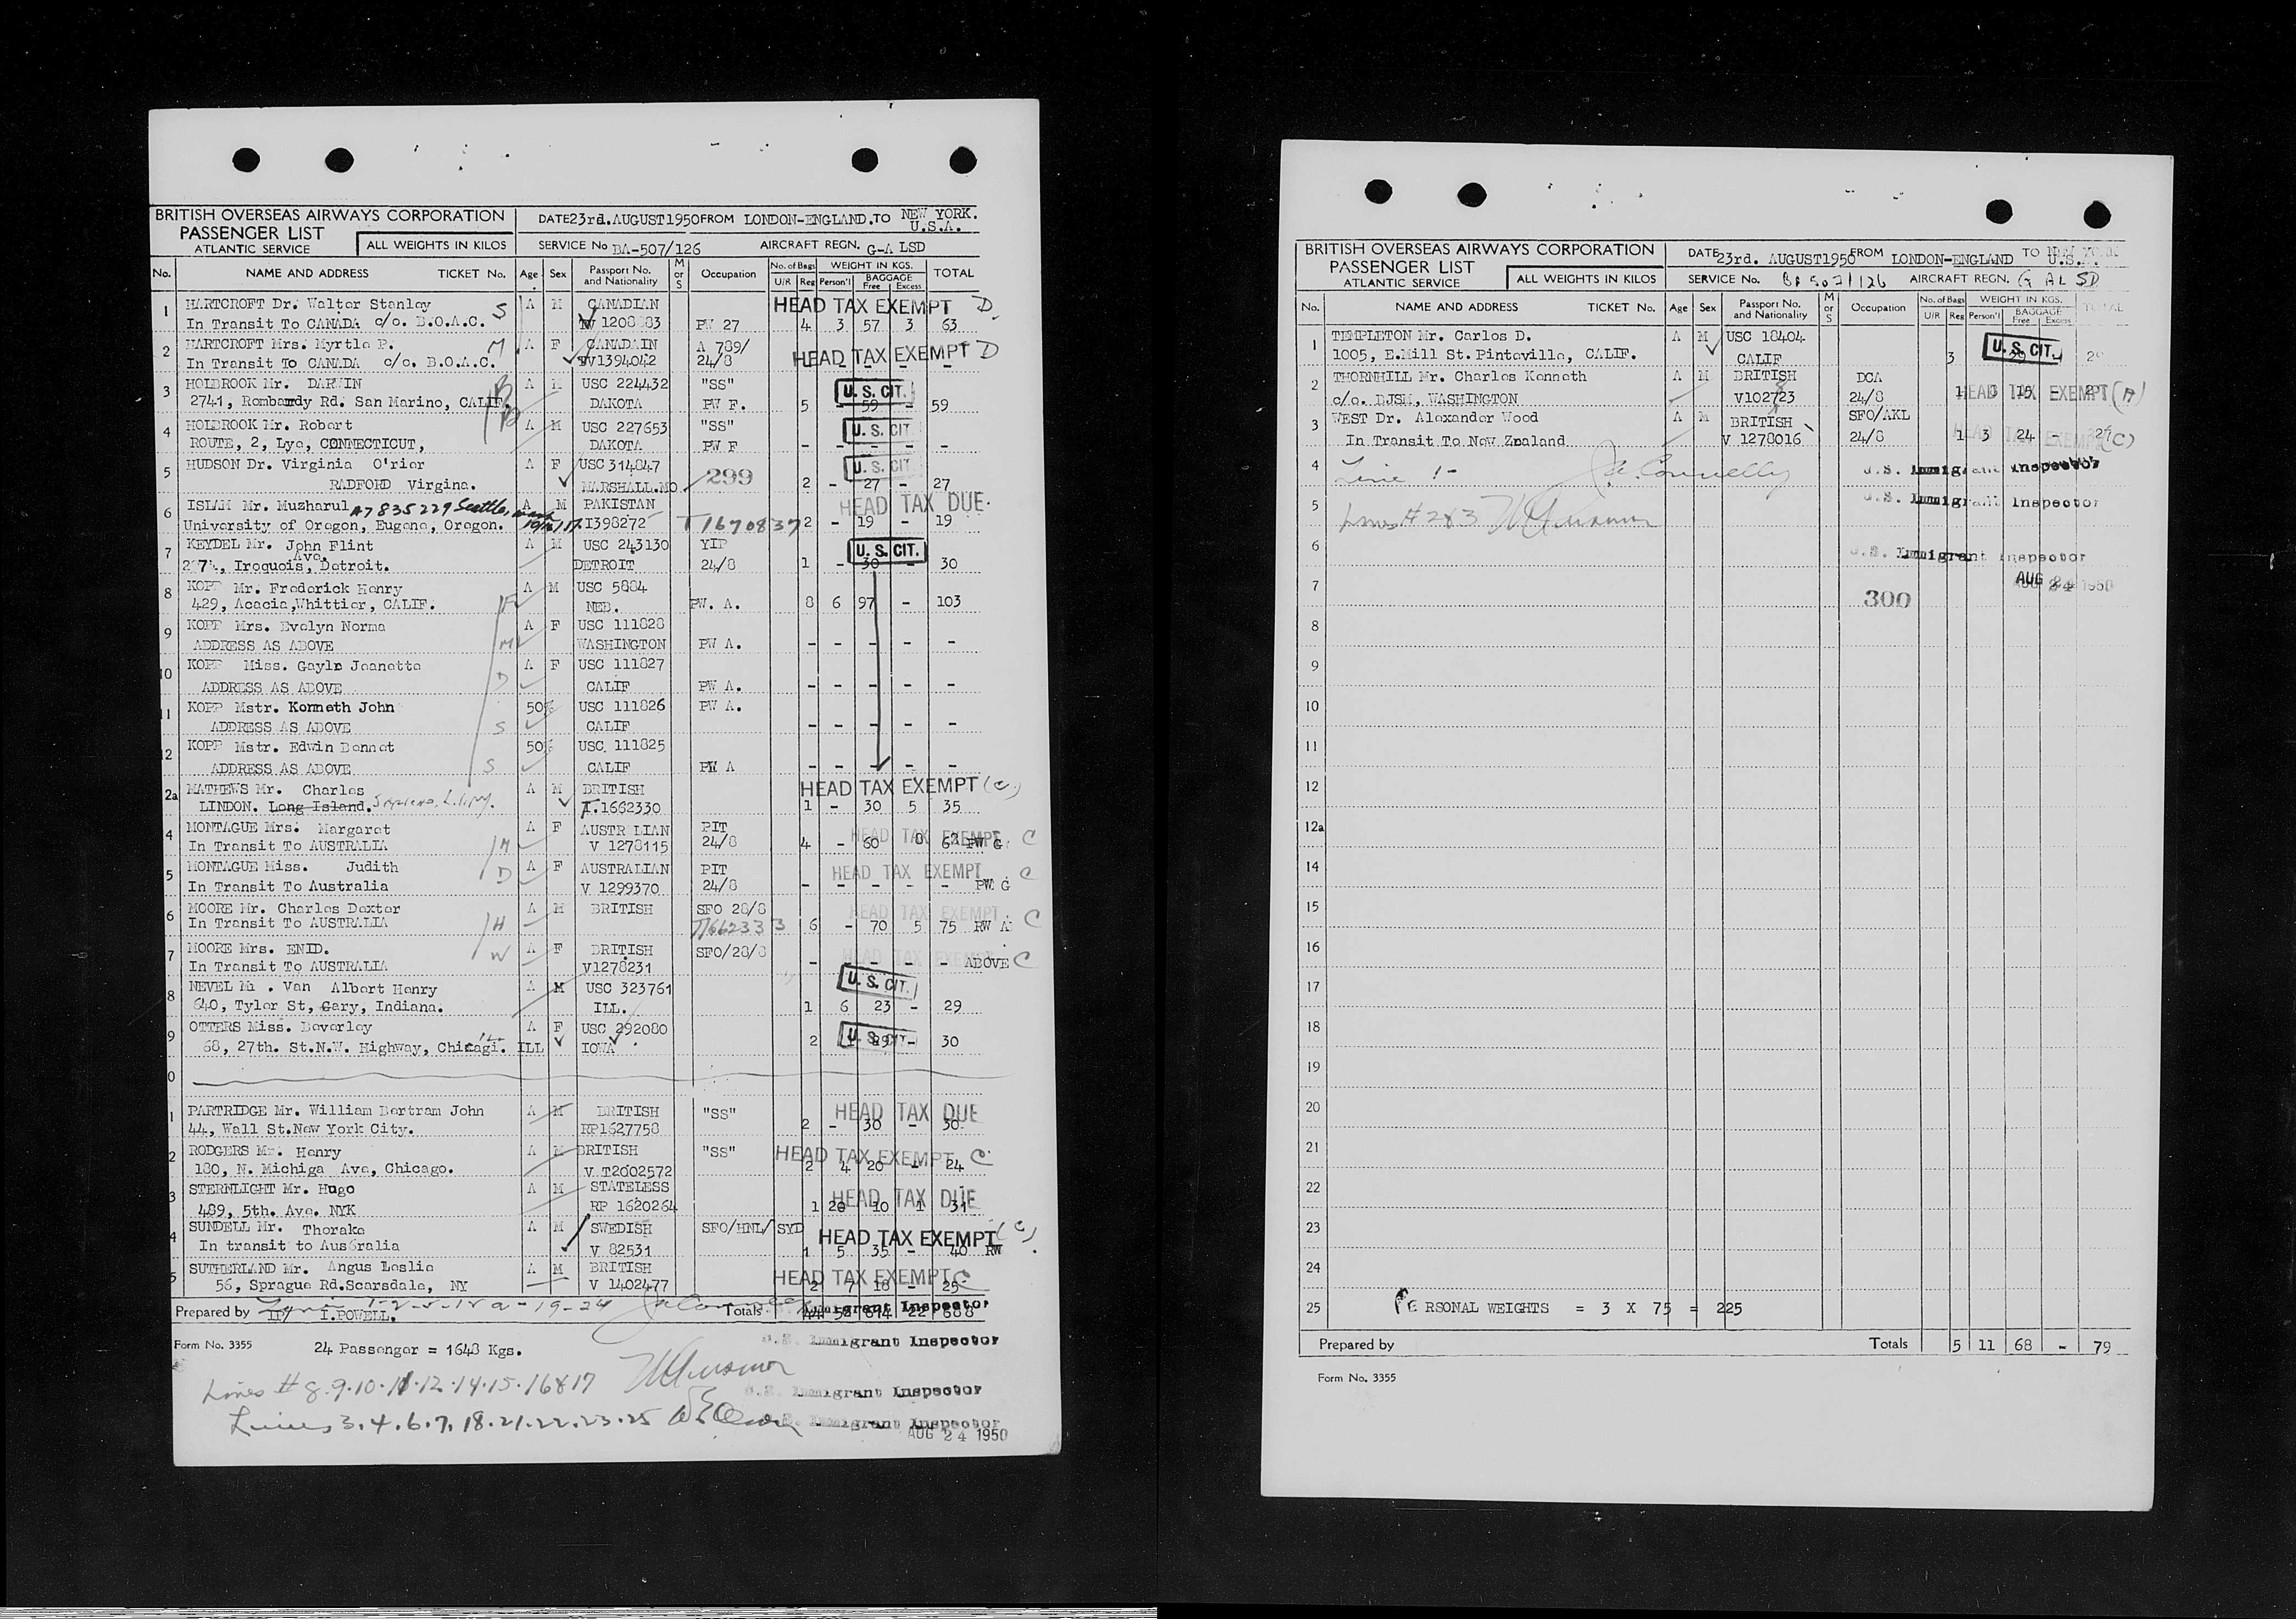 BRITISH OVERSEAS AIRWAYS CORPORATION
PASSENGER LIST
ATLANTIC SERVICE
ALL WEIGHTS IN KILOS
DATE 23rd. AUGUST 1950 FROM LONDON-ENGLAND. TO NEW YORK. U.S.A.
SERVICE No BA-507/126 AIRCRAFT REGN. G-A LSD
No. NAME AND ADDRESS TICKET No. Age Sex Passport No. and Nationality M or S Occupation No. of Bags U/R Reg WEIGHT IN KGS. Person'l BAGGAGE Free Excess TOTAL
1 HARTCROFT Dr. Walter Stanley S A M CANADIAN HEAD TAX EXEMPT D
In Transit To CANADA c/o. B.O.A.C. 1208883 PW 27 4 3 57 3 63
2 HARTCROFT Mrs. Myrtle P. M A F CANADAIN A 789/ HEAD TAX EXEMPT D
In Transit To CANADA c/o. B.O.A.C. V1394042 24/8
3 HOLBROOK Mr. DARWIN A M USC 224432 "SS" U. S. CIT.
2741, Rombardy Rd. San Marino, CALIF. DAKOTA PW F. 5 - 59 - 59
4 HOLBROOK Mr. Robert A M USC 227653 "SS" U. S. CIT
ROUTE, 2, Lye, CONNECTICUT, DAKOTA PW F - - - - -
5 HUDSON Dr. Virginia O'rier A F USC 314847 299 U. S. CIT
RADFORD Virgina. MARSHALL.MO 2 - 27 - 27
6 ISLAM Mr. Muzharul A7835229 Seattle, Wash A M PAKISTAN HEAD TAX DUE.
University of Oregon, Eugene, Oregon. I398272 T1670837 2 - 19 - 19
7 KEYDEL Mr. John Flint A M USC 243130 YIP U. S. CIT.
Iroquois Ave, Detroit. DETROIT 24/8 1 - 30 - 30
8 KOPP Mr. Frederick Henry A M USC 5884
429, Acacia, Whittier, CALIF. F NEB. PW. A. 8 6 97 - 103
9 KOPP Mrs. Evelyn Norma A F USC 111828
ADDRESS AS ABOVE M WASHINGTON PW A. - - - - -
10 KOPP Miss. Gayle Jeanette A F USC 111827
ADDRESS AS ABOVE D CALIF PW A. - - - - -
11 KOPP Mstr. Kenneth John 50% USC 111826 PW A.
ADDRESS AS ABOVE S CALIF - - - - -
12 KOPP Mstr. Edwin Bennet 50% USC. 111825
ADDRESS AS ABOVE S CALIF PW A - - - - -
2a MATHEWS Mr. Charles A M BRITISH HEAD TAX EXEMPT (C)
LINDON. Long Island. I.1662330 1 - 30 5 35
4 MONTAGUE Mrs. Margaret A F AUSTR LIAN PIT HEAD TAX EXEMPT C
In Transit To AUSTRALIA M V 1278115 24/8 4 - 60 8 PW G
5 MONTAGUE Miss. Judith A F AUSTRALIAN PIT HEAD TAX EXEMPT C
In Transit To Australia D V 1299370 24/8 - - - - - PW G
6 MOORE Mr. Charles Dexter A M BRITISH SFO 28/8 HEAD TAX EXEMPT
In Transit To AUSTRALIA H T1662333 6 - 70 5 75 RW A C
7 MOORE Mrs. ENID. A F BRITISH SFO/28/8 HEAD TAX
In Transit To AUSTRALIA W V1278231 - - - - - ABOVE C
8 NEVEL M . Van Albert Henry A M USC 323761 U. S. CIT.
640, Tyler St, Gary, Indiana. ILL. 1 6 23 - 29
9 OTTERS Miss. Beverley A F USC 292080 U. S. CIT.
68, 27th. St.N.W. Highway, Chicagi. ILL IOWA 2 - 30
0
1 PARTRIDGE Mr. William Bertram John A M BRITISH "SS" HEAD TAX DUE
44, Wall St.New York City. RP1627758 2 - 30 - 30
2 RODGERS Mr. Henry A M BRITISH "SS" HEAD TAX EXEMPT C
180, N. Michiga Ave, Chicago. V T2002572 2 4 20 - 24
3 STERNLIGHT Mr. Hugo A M STATELESS HEAD TAX DUE
489, 5th. Ave. NYK RP 1620264 1 20 10 1 31
4 SUNDELL Mr. Thorake A M SWEDISH SFO/HNL/ SYD HEAD TAX EXEMPT (C)
In transit to Australia V 82531 1 5 35 - 40 RW
5 SUTHERLAND Mr. Angus Leslie A M BRITISH HEAD TAX EXEMPT C
56, Sprague Rd.Scarsdale, NY V 1402477 2 7 18 - 25
Prepared by I.POWELL. Totals 44 58 614 22 688
Immigrant Inspector
Form No. 3355 24 Passenger = 1648 Kgs.
U.S. Immigrant Inspector
Lines # 8.9.10.11.12.14.15.16&17
U.S. Immigrant Inspector
Lines 3.4.6.7.18.21.22.23.25
Immigrant Inspector
AUG 24 1950
BRITISH OVERSEAS AIRWAYS CORPORATION
PASSENGER LIST
ATLANTIC SERVICE
ALL WEIGHTS IN KILOS
DATE 23rd. AUGUST 1950 FROM LONDON-ENGLAND TO NEW YORK U.S.
SERVICE No. BA 507/126 AIRCRAFT REGN. G AL SD
No. NAME AND ADDRESS TICKET No. Age Sex Passport No. and Nationality M or S Occupation No. of Bags U/R Reg WEIGHT IN KGS. Person'l BAGGAGE Free Excess TOTAL
1 TEMPLETON Mr. Carlos D. A M USC 18404 U. S. CIT.
1005, E.Mill St. Pinteville, CALIF. CALIF 3 29
2 THORNHILL Mr. Charles Kenneth A M BRITISH DCA
c/o. DJSM, WASHINGTON V102723 24/8 HEAD TAX EXEMPT (A)
3 WEST Dr. Alexander Wood A M BRITISH SFO/AKL
In Transit To New Zealand V 1278016 24/8 1 3 24 - 27 (C)
4 Line 1- J.A. Connelly U.S. Immigrant Inspector
5 U.S. Immigrant Inspector
Lines # 2&3
6 U.S. Immigrant Inspector
7 AUG 24 1950
300
8
9
10
11
12
12a
14
15
16
17
18
19
20
21
22
23
24
25 PERSONAL WEIGHTS = 3 X 75 = 225
Prepared by Totals 5 11 68 - 79
Form No. 3355